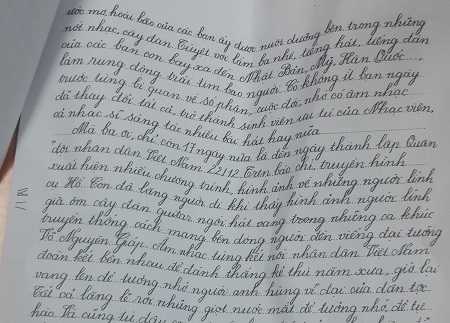 ước mơ, hoài bão của các bạn ấy được nuôi dưỡng bên trong những
nốt nhạc, cây đàn. Tuyệt vời lắm ba nhé, tiếng hát, tiếng đàn
của các bạn con bay xa đến Nhật Bản, Mỹ, Hàn Quốc...,
làm rung động trái tim bao người. Có không ít bạn ngày
trước từng bi quan về số phận, cuộc đời, nhờ có âm nhạc
đã thay đổi tất cả, trở thành sinh viên ưu tú của Nhạc viện,
cả nhạc sĩ sáng tác nhiều bài hát hay nữa.
Mà ba ơi, chỉ còn 17 ngày nữa là đến ngày thành lập Quân
đội nhân dân Việt Nam 22/12. Trên báo chí, truyền hình
xuất hiện nhiều chương trình, hình ảnh về những người lính
cụ Hồ. Con đã lặng người đi khi thấy hình ảnh người lính
già ôm cây đàn guitar ngồi hát vang trong những ca khúc
truyền thống cách mạng bên dòng người đến viếng đại tướng
Võ Nguyên Giáp. Âm nhạc từng kết nối nhân dân Việt Nam
đoàn kết bên nhau để đánh thắng kẻ thù năm xưa, giờ lại
vang lên để tưởng nhớ người anh hùng vĩ đại của dân tộc.
Tất cả lặng lẽ rơi những giọt nước mắt để tưởng nhớ, để tự
hào. Và cũng từ đây